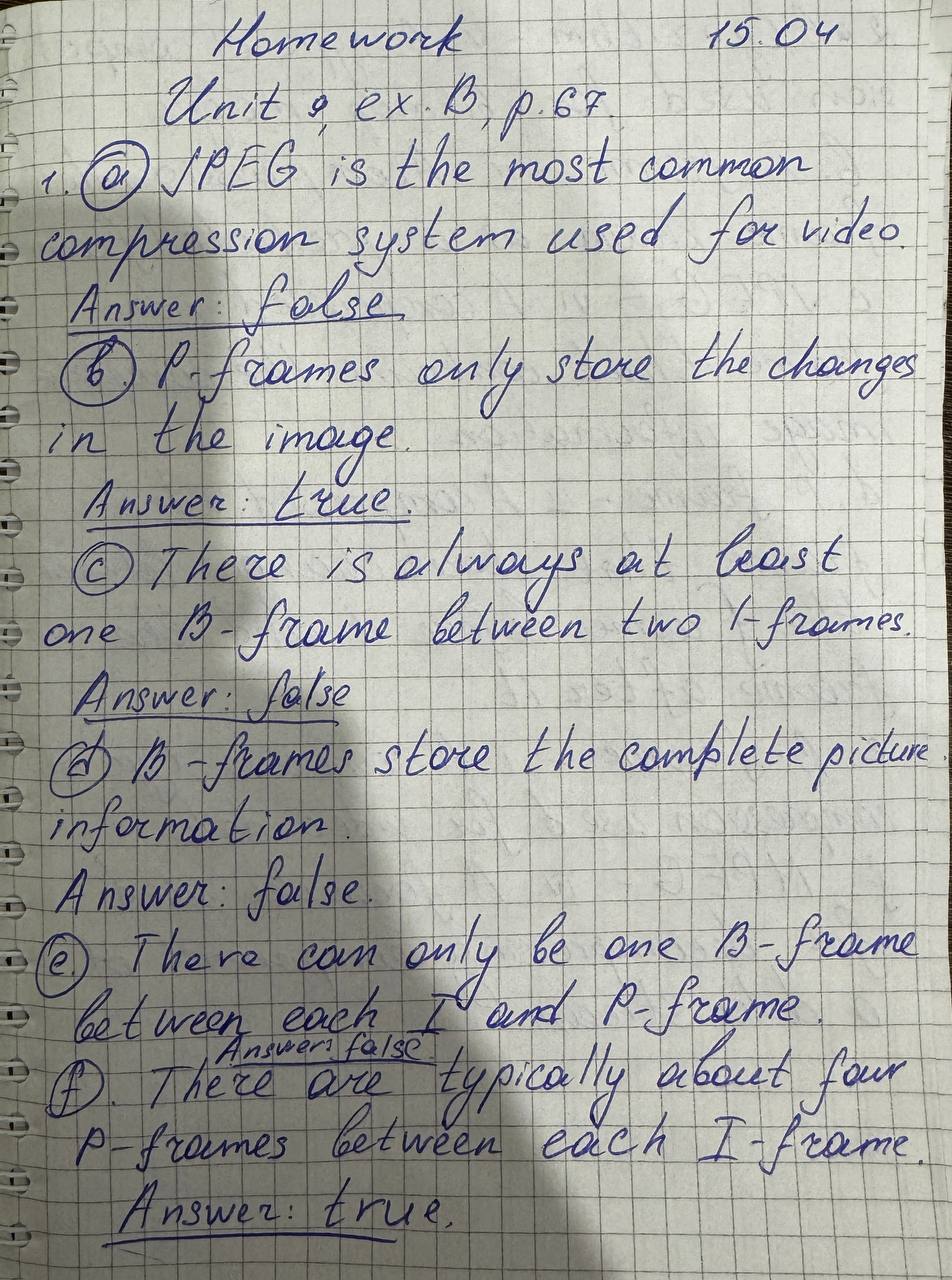 Homework 15.04
Unit 9, ex. B, p. 67.
1. a) JPEG is the most common
compression system used for video.
Answer: false.
b. P-frames only store the changes
in the image.
Answer: true.
c There is always at least
one B-frame between two I-frames.
Answer: false
d B-frames store the complete picture
information.
Answer: false.
e. There can only be one B-frame
between each I and P-frame.
Answer: false.
f. There are typically about four
P-frames between each I-frame.
Answer: true.